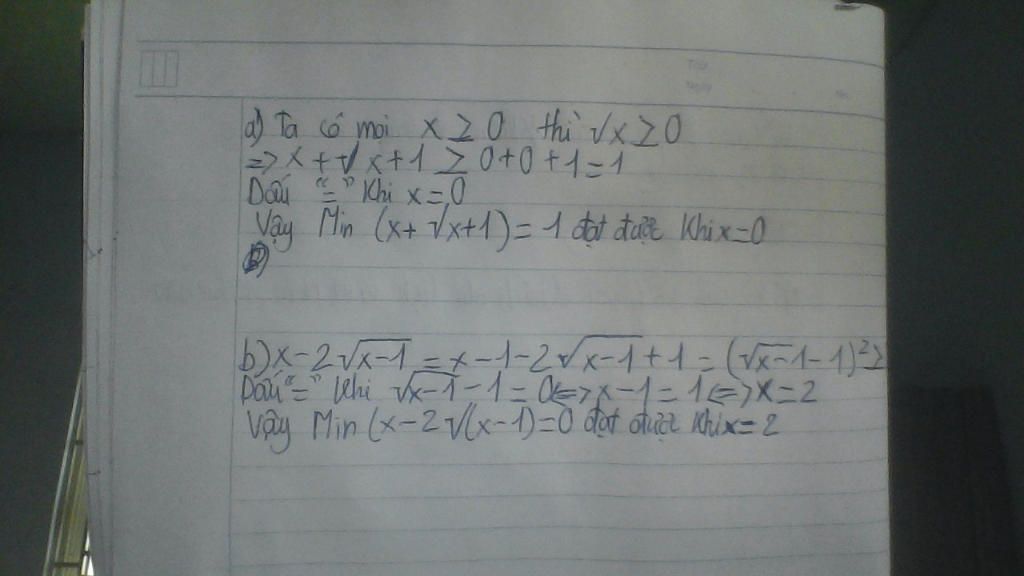 a) Ta có mọi x ≥ 0 thì √x ≥ 0
=> x + √x + 1 ≥ 0+0+1=1
Dấu "=" Khi x=0
Vậy Min (x+ √x+1) = 1 đạt được Khi x=0
b) x-2√(x-1) = x-1-2√(x-1)+1 = (√(x-1)-1)² ≥
Dấu "=" Khi √(x-1) -1 = 0 <=> x-1=1 <=> x=2
Vậy Min (x-2√(x-1)=0 đạt được Khi x=2